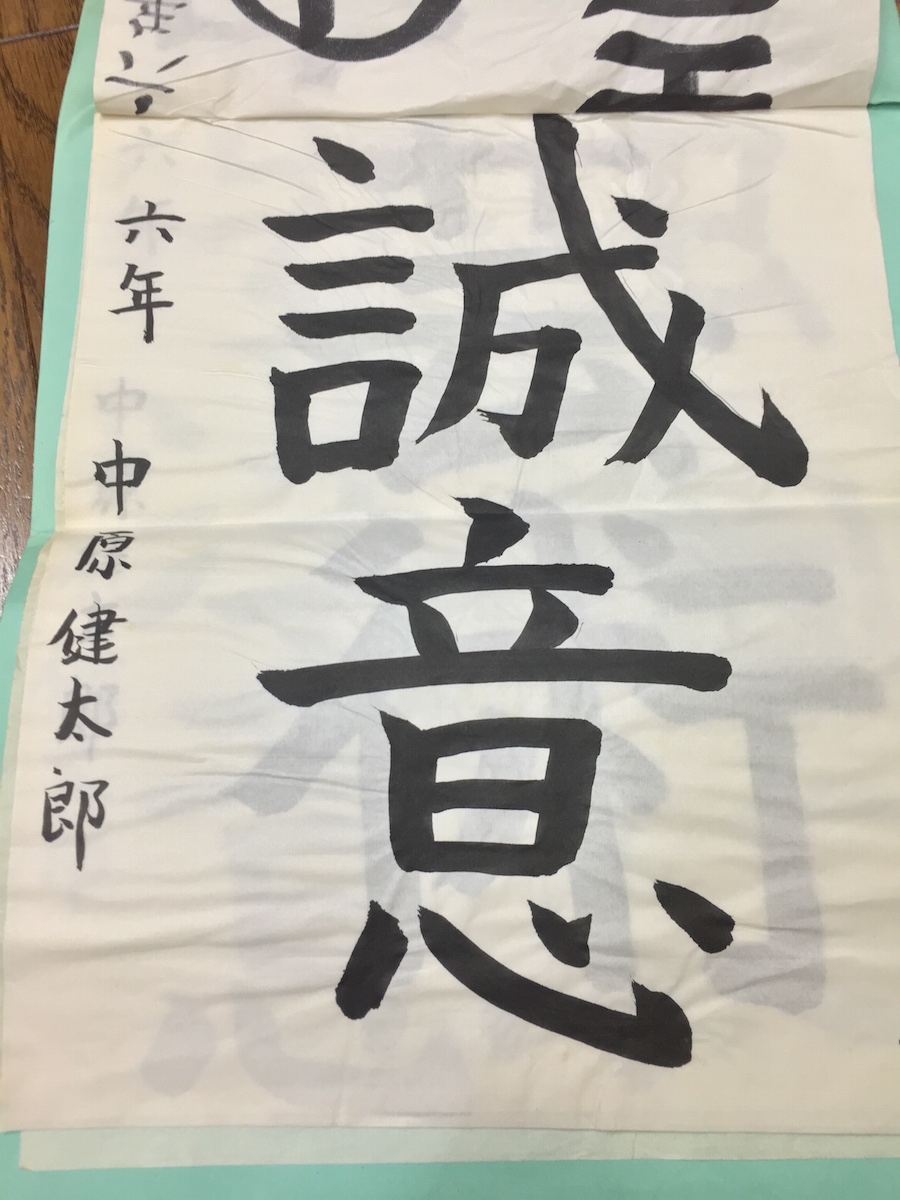 誠意
六年 中原健太郎